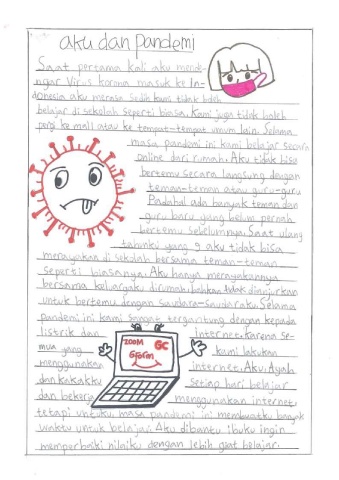 aku dan pandemi
Saat pertama kali aku mende-
ngar Virus korona masuk ke In-
donesia aku merasa sedih kami tidak boleh
belajar di sekolah seperti biasa. Kami juga tidak boleh
pergi ke mall atau ke tempat-tempat umum lain. Selama
masa pandemi ini kami belajar secara
online dari rumah. Aku tidak bisa
bertemu secara langsung dengan
teman-teman atau guru-guru
Padahal ada banyak teman dan
guru baru yang belum pernah
bertemu sebelumnya. Saat ulang
tahunku yang 9 aku tidak bisa
merayakannya di sekolah bersama teman-teman
seperti biasanya. Aku hanya merayakannya
bersama keluargaku dirumah. bahkan tidak dianjurkan
untuk bertemu dengan saudara-saudaraku. Selama
pandemi ini kami sangat tergantung dengan kepada
listrik dan internet. Karena se-
mua yang kami lakukan
menggunakan internet. Aku, Ayah
dan kakakku setiap hari belajar
dan bekerja menggunakan internet,
tetapi untukku masa pandemi ini membuatku banyak
waktu untuk belajar. Aku dibantu ibuku ingin
memperbaiki nilaiku dengan lebih giat belajar.
ZOOM GC
Gform